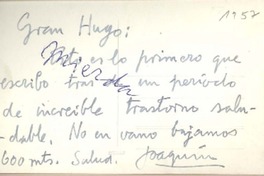 1957
Gran Hugo:
Esto es lo primero que
escribo tras un período
de increíble trastorno salu-
dable. No en vano bajamos
600 mts. Salud. Joaquín